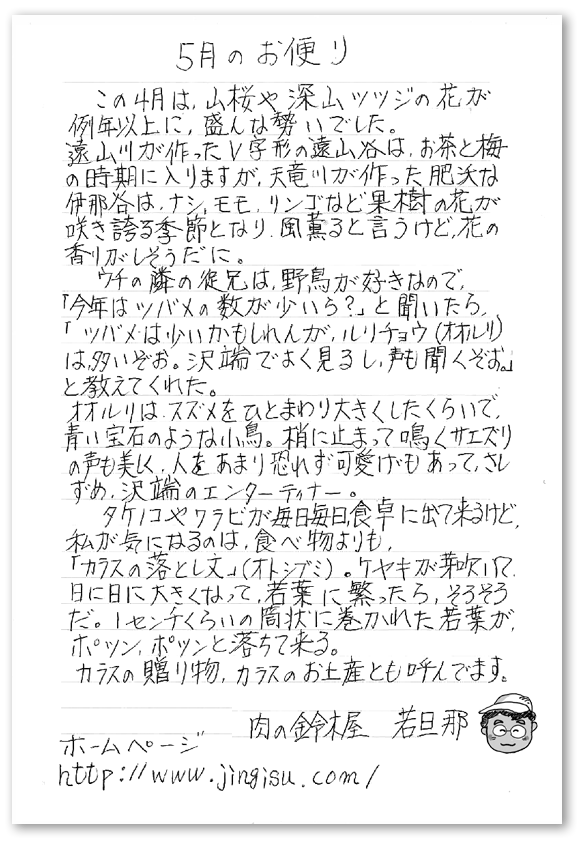 5月のお便り
この4月は、山桜や深山ツツジの花が
例年以上に、盛んな勢いでした。
遠山川が作ったV字形の遠山谷は、お茶と梅
の時期に入りますが、天竜川が作った肥沃な
伊那谷は、ナシ、モモ、リンゴなど果樹の花が
咲き誇る季節となり、風薫ると言うけど、花の
香りがしそうだに。
ウチの隣の従兄は、野鳥が好きなので、
「今年はツバメの数が少いら?」と聞いたら、
「ツバメは少いかもしれんが、ルリチョウ(オオルリ)
は、多いぞお。沢端でよく見るし、声も聞くぞお。」
と教えてくれた。
オオルリは、スズメをひとまわり大きくしたくらいで、
青い宝石のような小鳥。梢に止まって鳴くサエズリ
の声も美しく、人をあまり恐れず可愛げもあって、さし
ずめ、沢端のエンターティナー。
タケノコやワラビが毎日毎日、食卓に出て来るけど、
私が気になるのは、食べ物よりも、
「カラスの落とし文」(オトシブミ)。ケヤキが芽吹いて、
日に日に大きくなって、若葉に繁ったら、そろそろ
だ。1センチくらいの筒状に巻かれた若葉が、
ポツン、ポツンと落ちて来る。
カラスの贈り物、カラスのお土産とも呼んでます。
肉の鈴木屋 若旦那
ホームページ
http://www.jingisu.com/